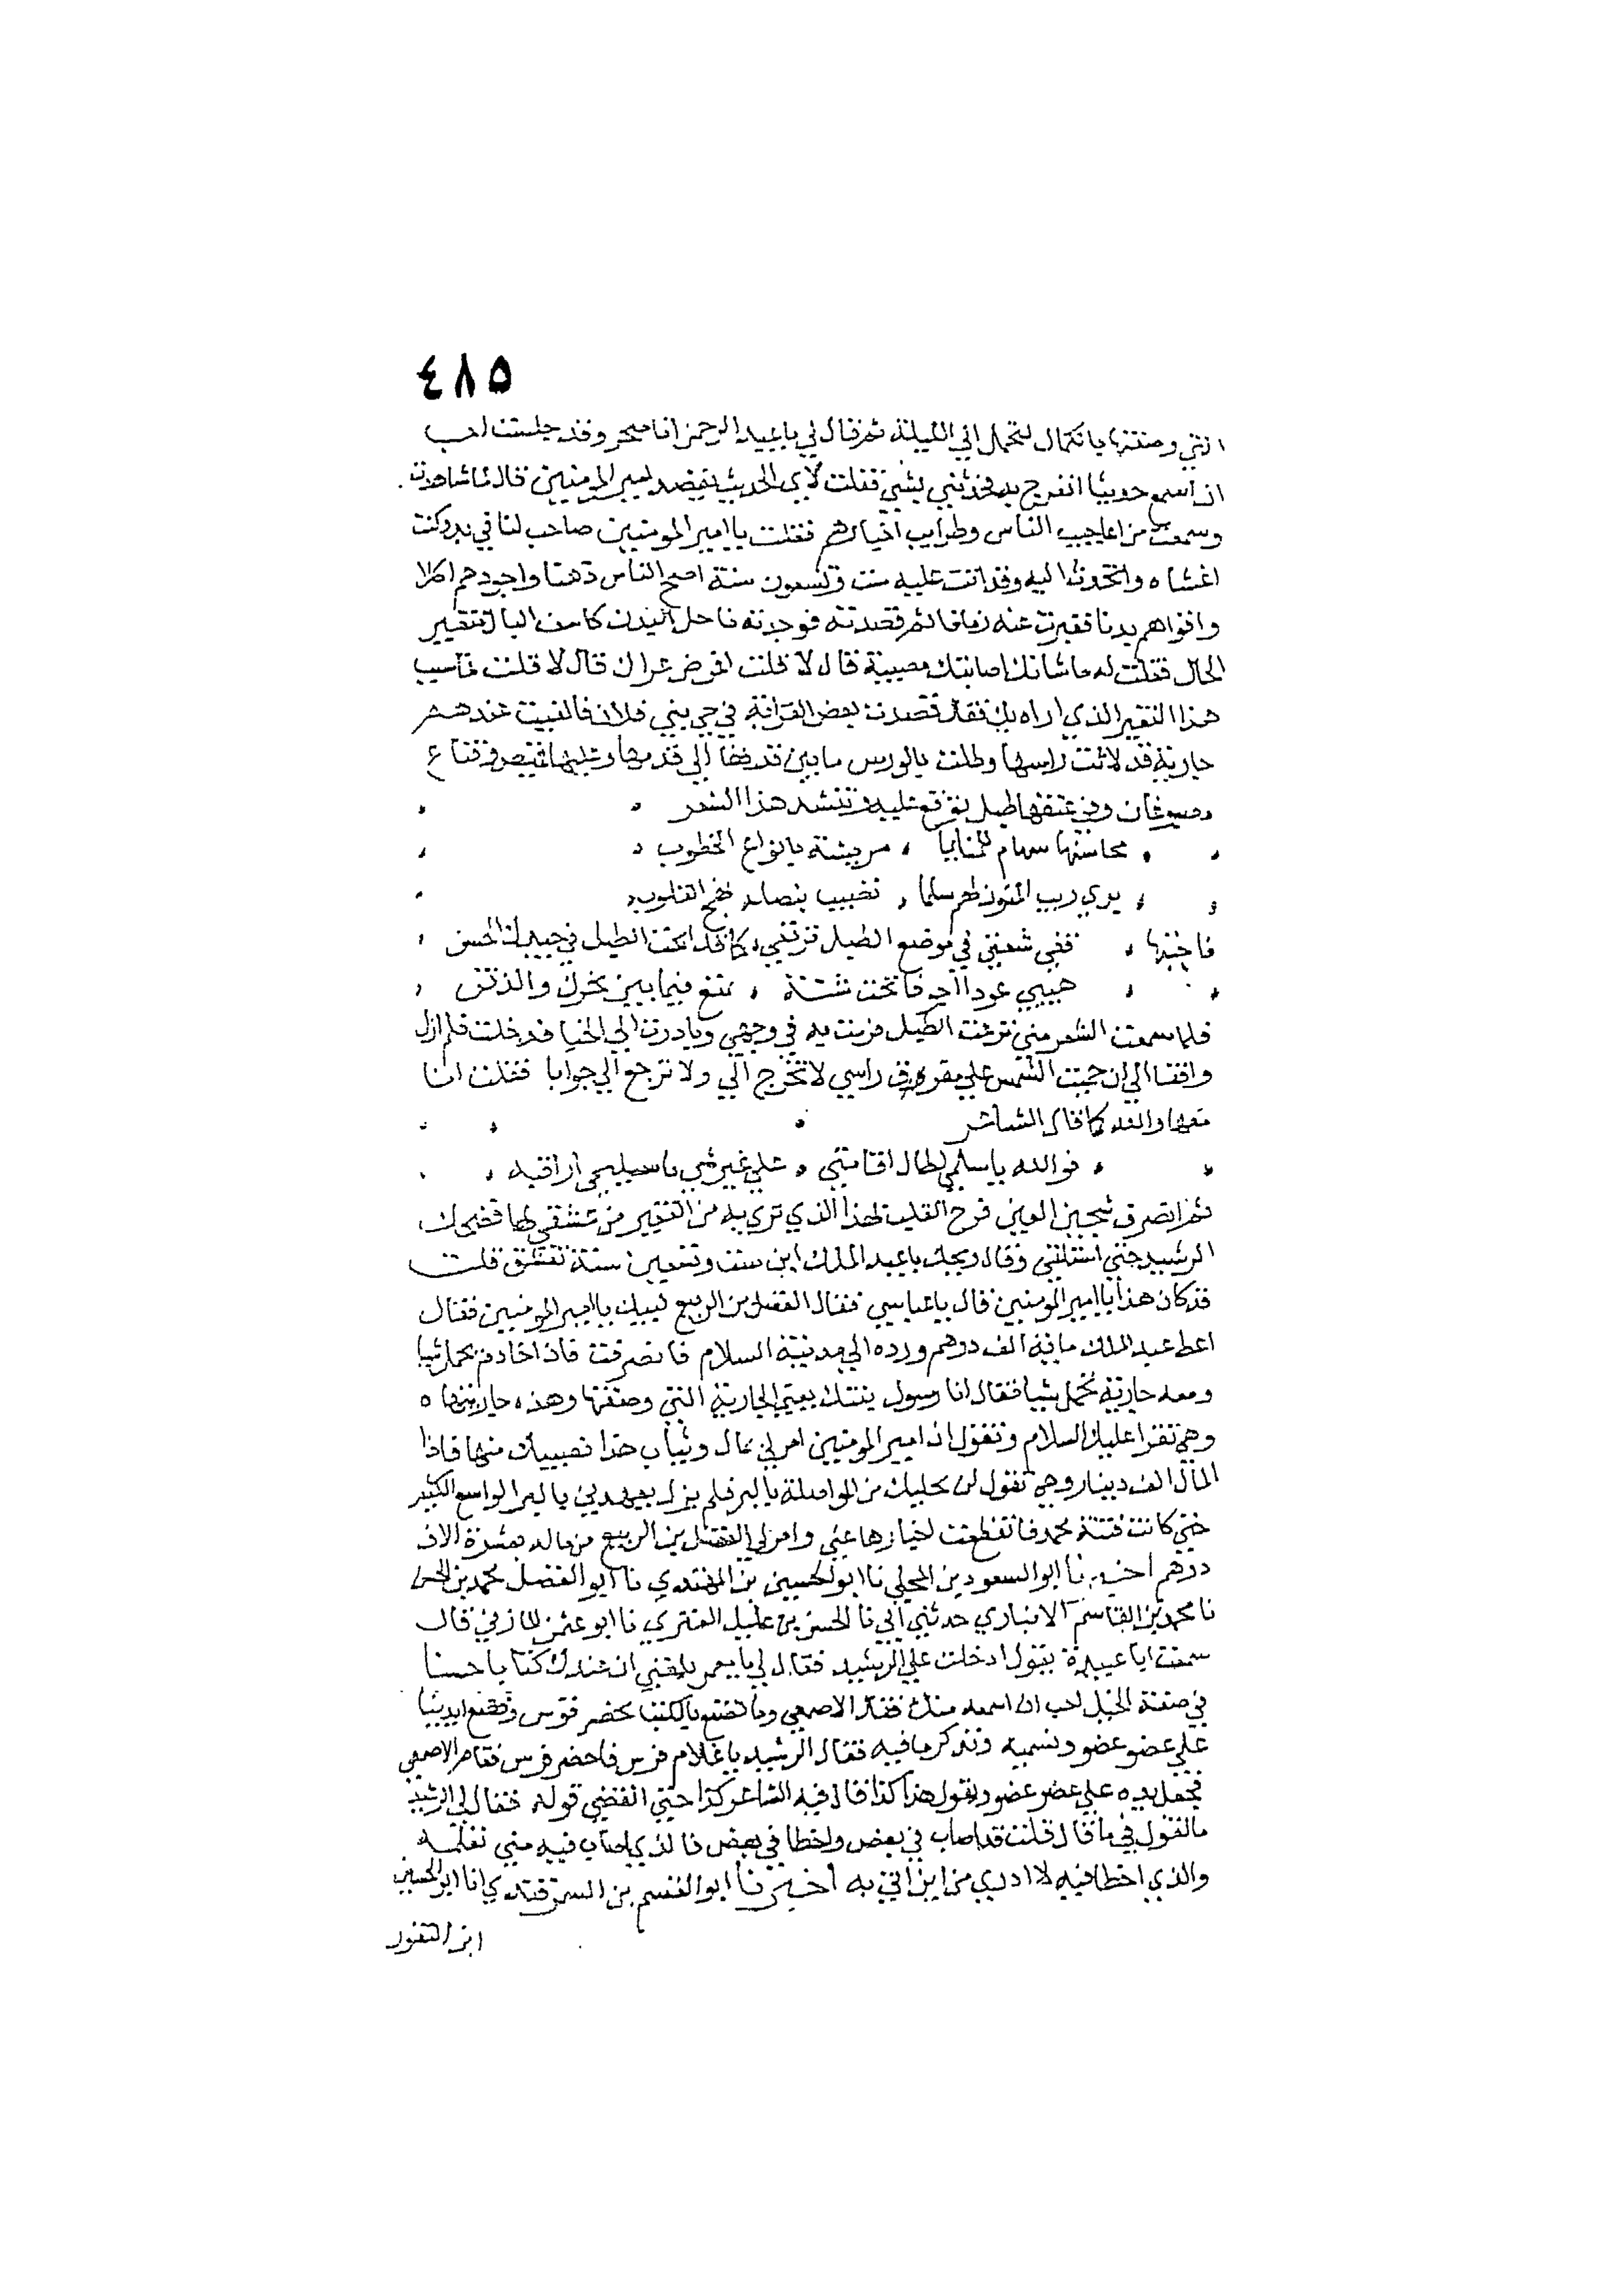 ٤٨٥
التي وصفتها بالكمال لتحمل الي الليلة ثم قال لي يا عبد الرحمن انا ضجر وقد جلست احب
ان اسمع حديثا انفرج به فحدثني بشي فقلت لاي الحديث يقصد امير المومنين قال لما شاهدت
وسمعت من اعاجيب الناس وطرايب اخبارهم فقلت يا امير المومنين صاحب لنا في بدو كنت
اغشاه واتحدث اليه وقد اتت عليه ست وتسعون سنة اصح الناس ذهنا واجودهم اكلا
واقواهم بدنا فغبرت عنه زمانا ثم قصدته فوجدته ناحل البدن كاسف البال متغير
الحال فقلت له ما شانك اصابتك مصيبة قال لا قلت افمرض عراك قال لا قلت فما سبب
هذا التغير الذي اراه بك فقال قصدت بعض القرابة في حي بني فلان فالفيت عندهم
جارية قد لاثت راسها وطلت بالورس ما بين قدمها الي قدمها وعليها قميص وقناع
مصبوغان وفي عنقها طبل توقع عليه وتنشد هذا الشعر
محاسنها سهام للمنايا ، مريشة بانواع الخطوب
يري ريب المنون لهم سهما ، تصيب بنصله مهج القلوب
فاجبتها ، قفي شفتي في موضع الطبل ترتقي ، كما قد ابحت الطبل في جيدك الحسن
هبيني عودا اجوفا تحت شنة ، تمتع فيما بين نحرك والذقن
فلما سمعت الشعر مني نزعت الطبل فرمت به في وجهي وبادرت الي الخبا فدخلت فلم ازل
واقفا الي ان حميت الشمس علي مفرق راسي لا تخرج الي ولا ترجع الي جوابا فقلت انا
معها والله كما قال الشاعر
فوالله يا سلمي لطال اقامتي ، علي غير شي يا سليمي اراقبه
ثم انصرف سخين العين قرح القلب فهذا الذي تري به من التغير من عشقي لها فضحك
الرشيد حتي استلقي وقال ويحك يا عبد الملك ابن ست وتسعين سنة تعشق قلت
قد كان هذا يا امير المومنين قال يا عباسي فقال الفضل بن الربيع لبيك يا امير المومنين فقال
اعط عبد الملك ماية الف درهم ورده الي مدينة السلام فانصرفت فاذا خادم يحمل شيا
ومعه جارية تحمل شيا فقال انا رسول بنتك يعني الجارية التي وصفتها وهذه جاريتها ه
وهي تقرا عليك السلام وتقول ان امير المومنين امر لي بمال وثياب هذا نصيبك منها فاذا
المال الف دينار وهي تقول لن نخليك من المواصلة بالبر فلم يزل يتعهدني بالبر الواسع الكثير
حتي كانت فتنة محمد فانقطعت اخبارها عني وامر لي الفضل بن الربيع من ماله بعشرة الاف
درهم اخبرنا ابو السعود بن المجلي نا ابو الحسين بن المهتدي نا ابو الفضل محمد بن الحسن
نا محمد بن القاسم الانباري حدثني ابي نا الحسن بن عليل العنزي نا ابو عثمن المازني قال
سمعت ابا عبيدة يقول ادخلت علي الرشيد فقال لي يا معمر بلغني ان عندك كتابا حسنا
في صفة الخيل احب ان اسمعه منك فقال الاصمعي وما تصنع بالكتب يحضر فرس ونضع ايدينا
علي عضو عضو ونسميه ونذكر ما فيه فقال الرشيد يا غلام فرس فاحضر فرس فقام الاصمعي
فجعل يده علي عضو عضو ويقول هذا كذا قال فيه الشاعر كذا حتي انقضي قوله فقال لي الرشيد
ما تقول فيما قال قلت قد اصاب في بعض واخطا في بعض فالذي اصاب فيه مني تعلمه
والذي اخطا فيه لا ادري من اين اتي به اخبرنا ابو القسم بن السمرقندي انا ابو الحسين
ابن النقور